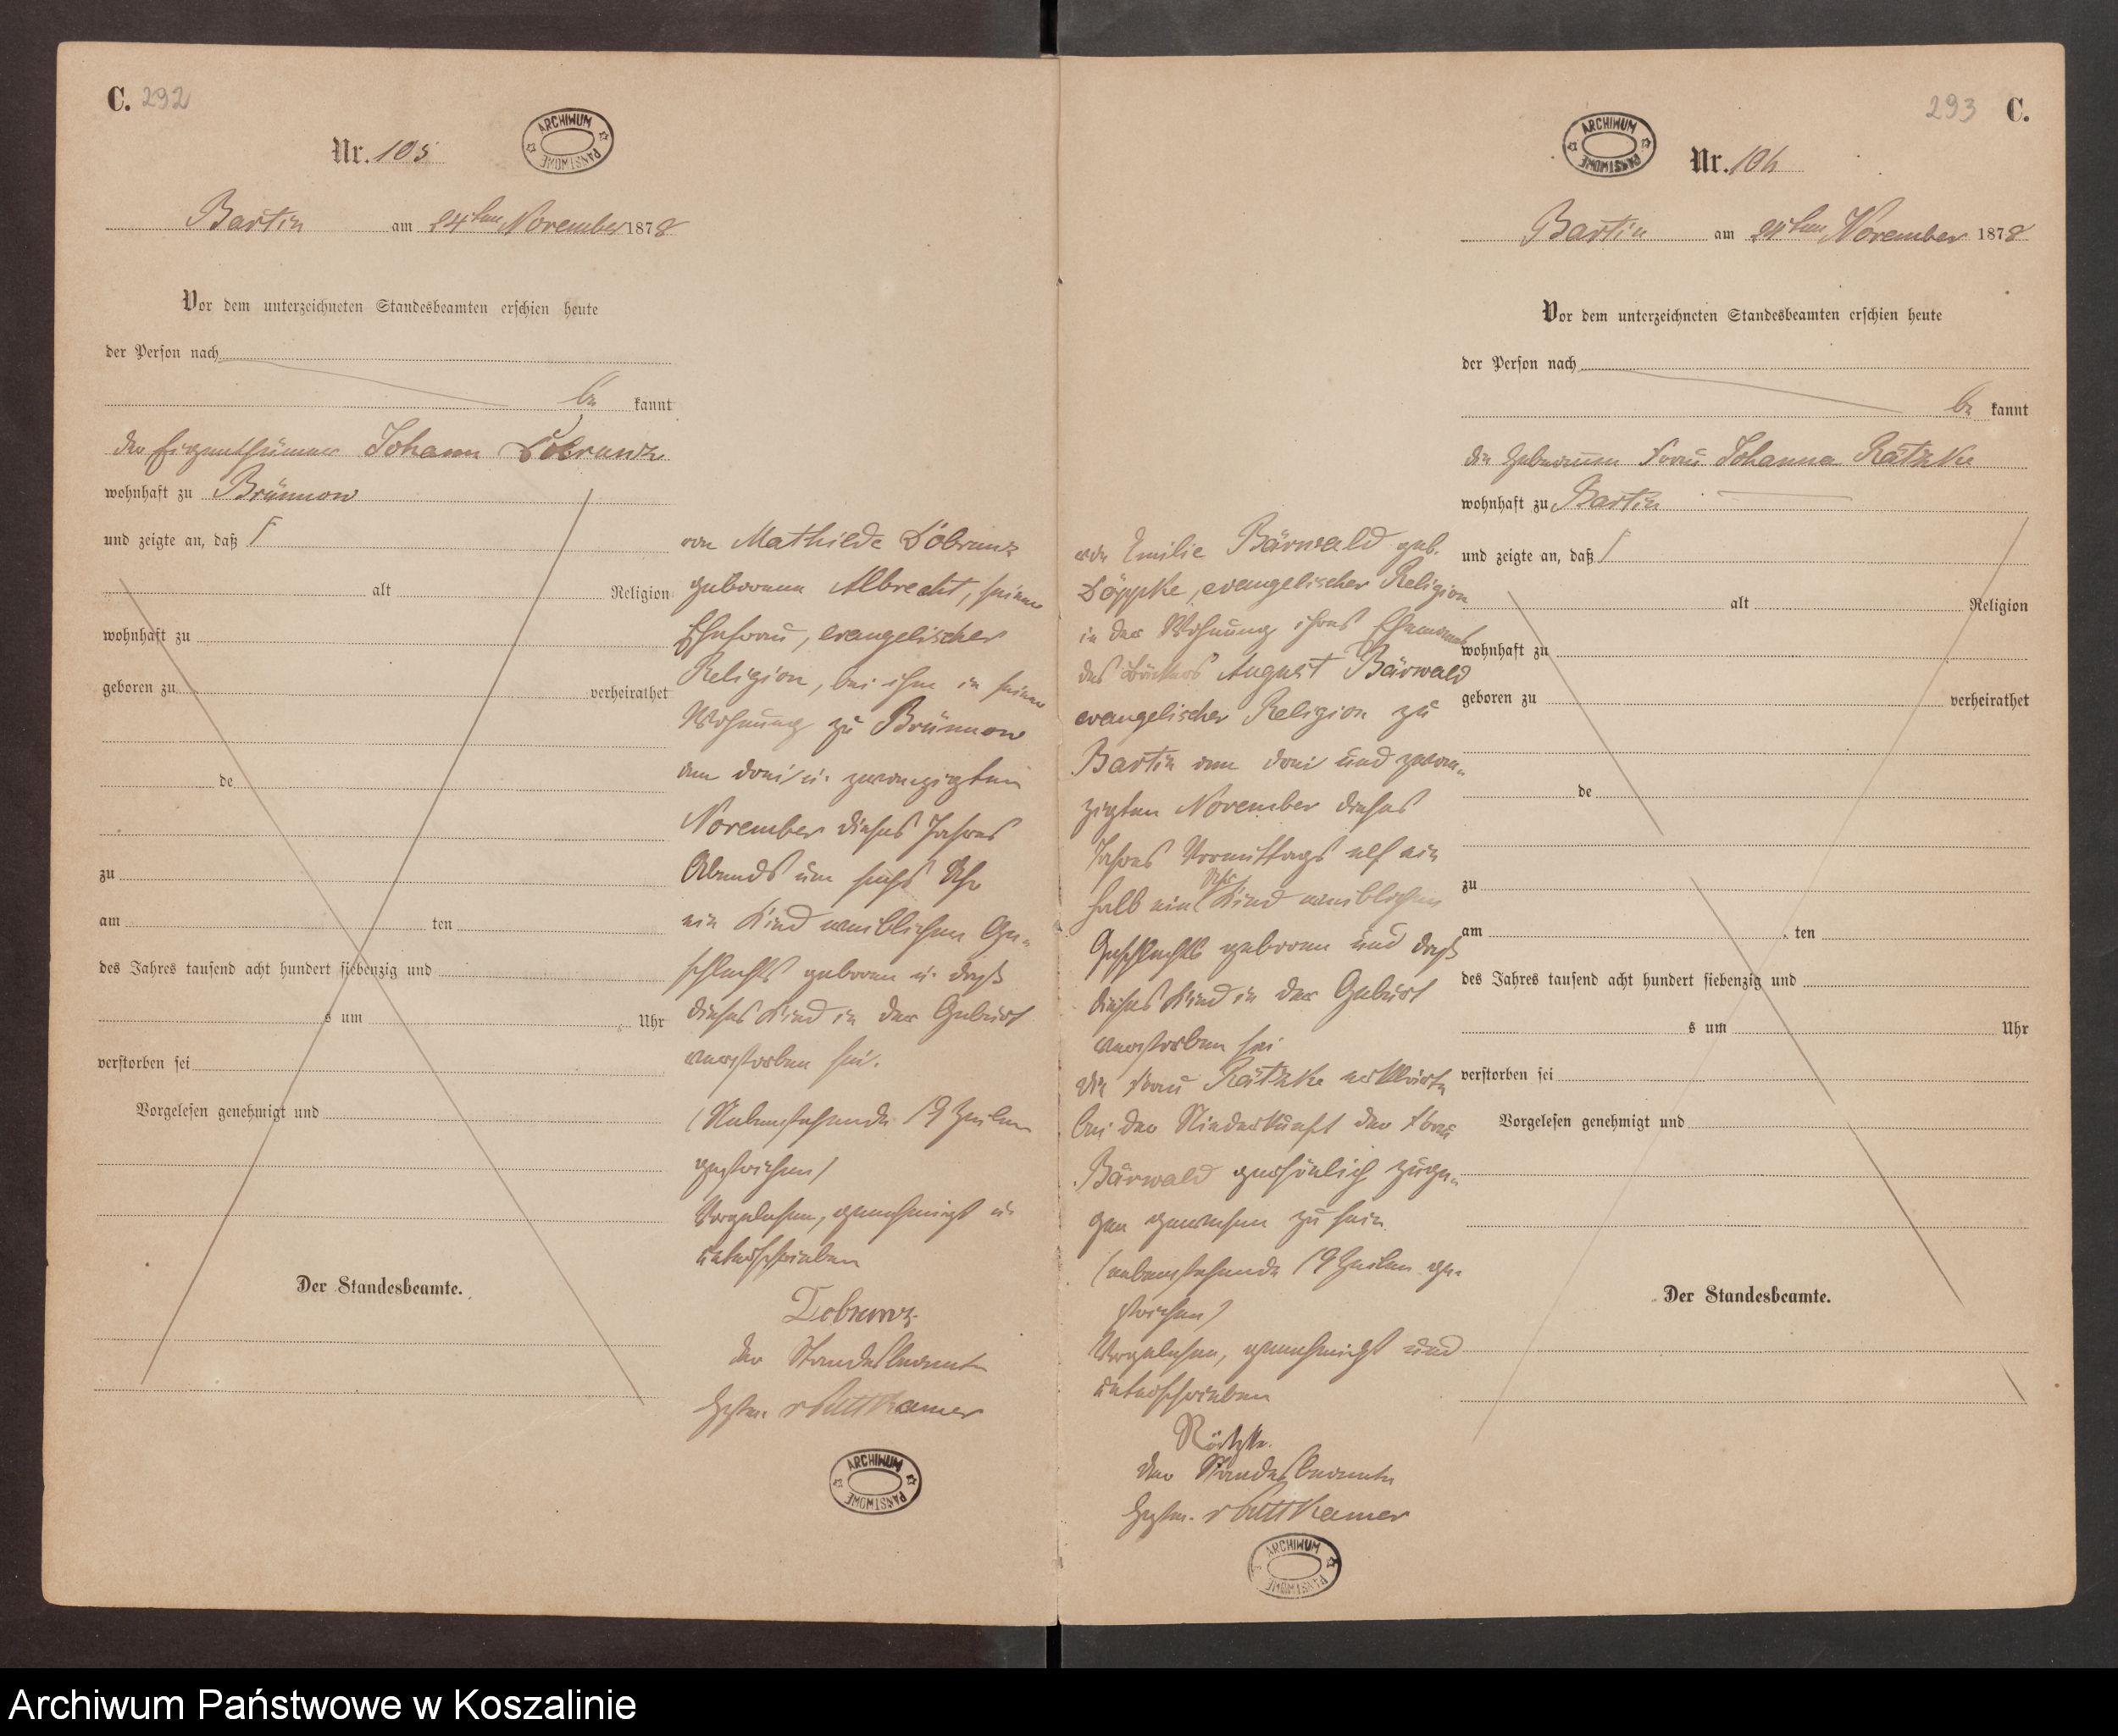 C. 292
ARCHIWUM PAŃSTWOWE
Nr. 105
Bartin am 24ten November 1878
Vor dem unterzeichneten Standesbeamten erschien heute
der Person nach
be kannt
der Eigenthümer Johann
wohnhaft zu Brünnow
und zeigte an, daß
alt Religion
wohnhaft zu
geboren zu verheirathet
de
zu
am ten
des Jahres tausend acht hundert siebenzig und
s um Uhr
verstorben sei
Vorgelesen genehmigt und
Der Standesbeamte.
von Mathilde
geborene Albrecht, seiner
Ehefrau, evangelischer
Religion, bei ihm in seiner
Wohnung zu Brünnow
am drei u. zwanzigsten
November dieses Jahres
Abends um sechs Uhr
ein Kind weiblichen Ge-
schlechts geboren u. daß
dieses Kind in der Geburt
verstorben sei.
(Nebenstehende 19 Zeilen
gestrichen)
Vorgelesen, genehmigt u.
unterschrieben
der Standesbeamte
v Puttkamer
ARCHIWUM PAŃSTWOWE
293 C.
ARCHIWUM PAŃSTWOWE
Nr. 106
Bartin am 24ten November 1878
Vor dem unterzeichneten Standesbeamten erschien heute
der Person nach
be kannt
die Hebamme Frau Johanna Rätzke
wohnhaft zu Bartin
und zeigte an, daß
alt Religion
wohnhaft zu
geboren zu verheirathet
de
zu
am ten
des Jahres tausend acht hundert siebenzig und
s um Uhr
verstorben sei
Vorgelesen genehmigt und
Der Standesbeamte.
von Emilie Bärwald geb.
Döppke, evangelischer Religion
in der Wohnung ihres Ehemannes
des August Bärwald
evangelischer Religion zu
Bartin am drei und zwan-
zigsten November dieses
Jahres Vormittags elf ein
halb ein Uhr Kind weiblichen
Geschlechts geboren und daß
dieses Kind in der Geburt
verstorben sei
die Frau Rätzke erklärte
bei der Niederkunft der Frau
Bärwald persönlich zuge-
gen gewesen zu sein
(nebenstehende 19 Zeilen ge-
strichen)
Vorgelesen, genehmigt und
unterschrieben
Rätzke.
der Standesbeamte
v Puttkamer
ARCHIWUM PAŃSTWOWE
Archiwum Państwowe w Koszalinie